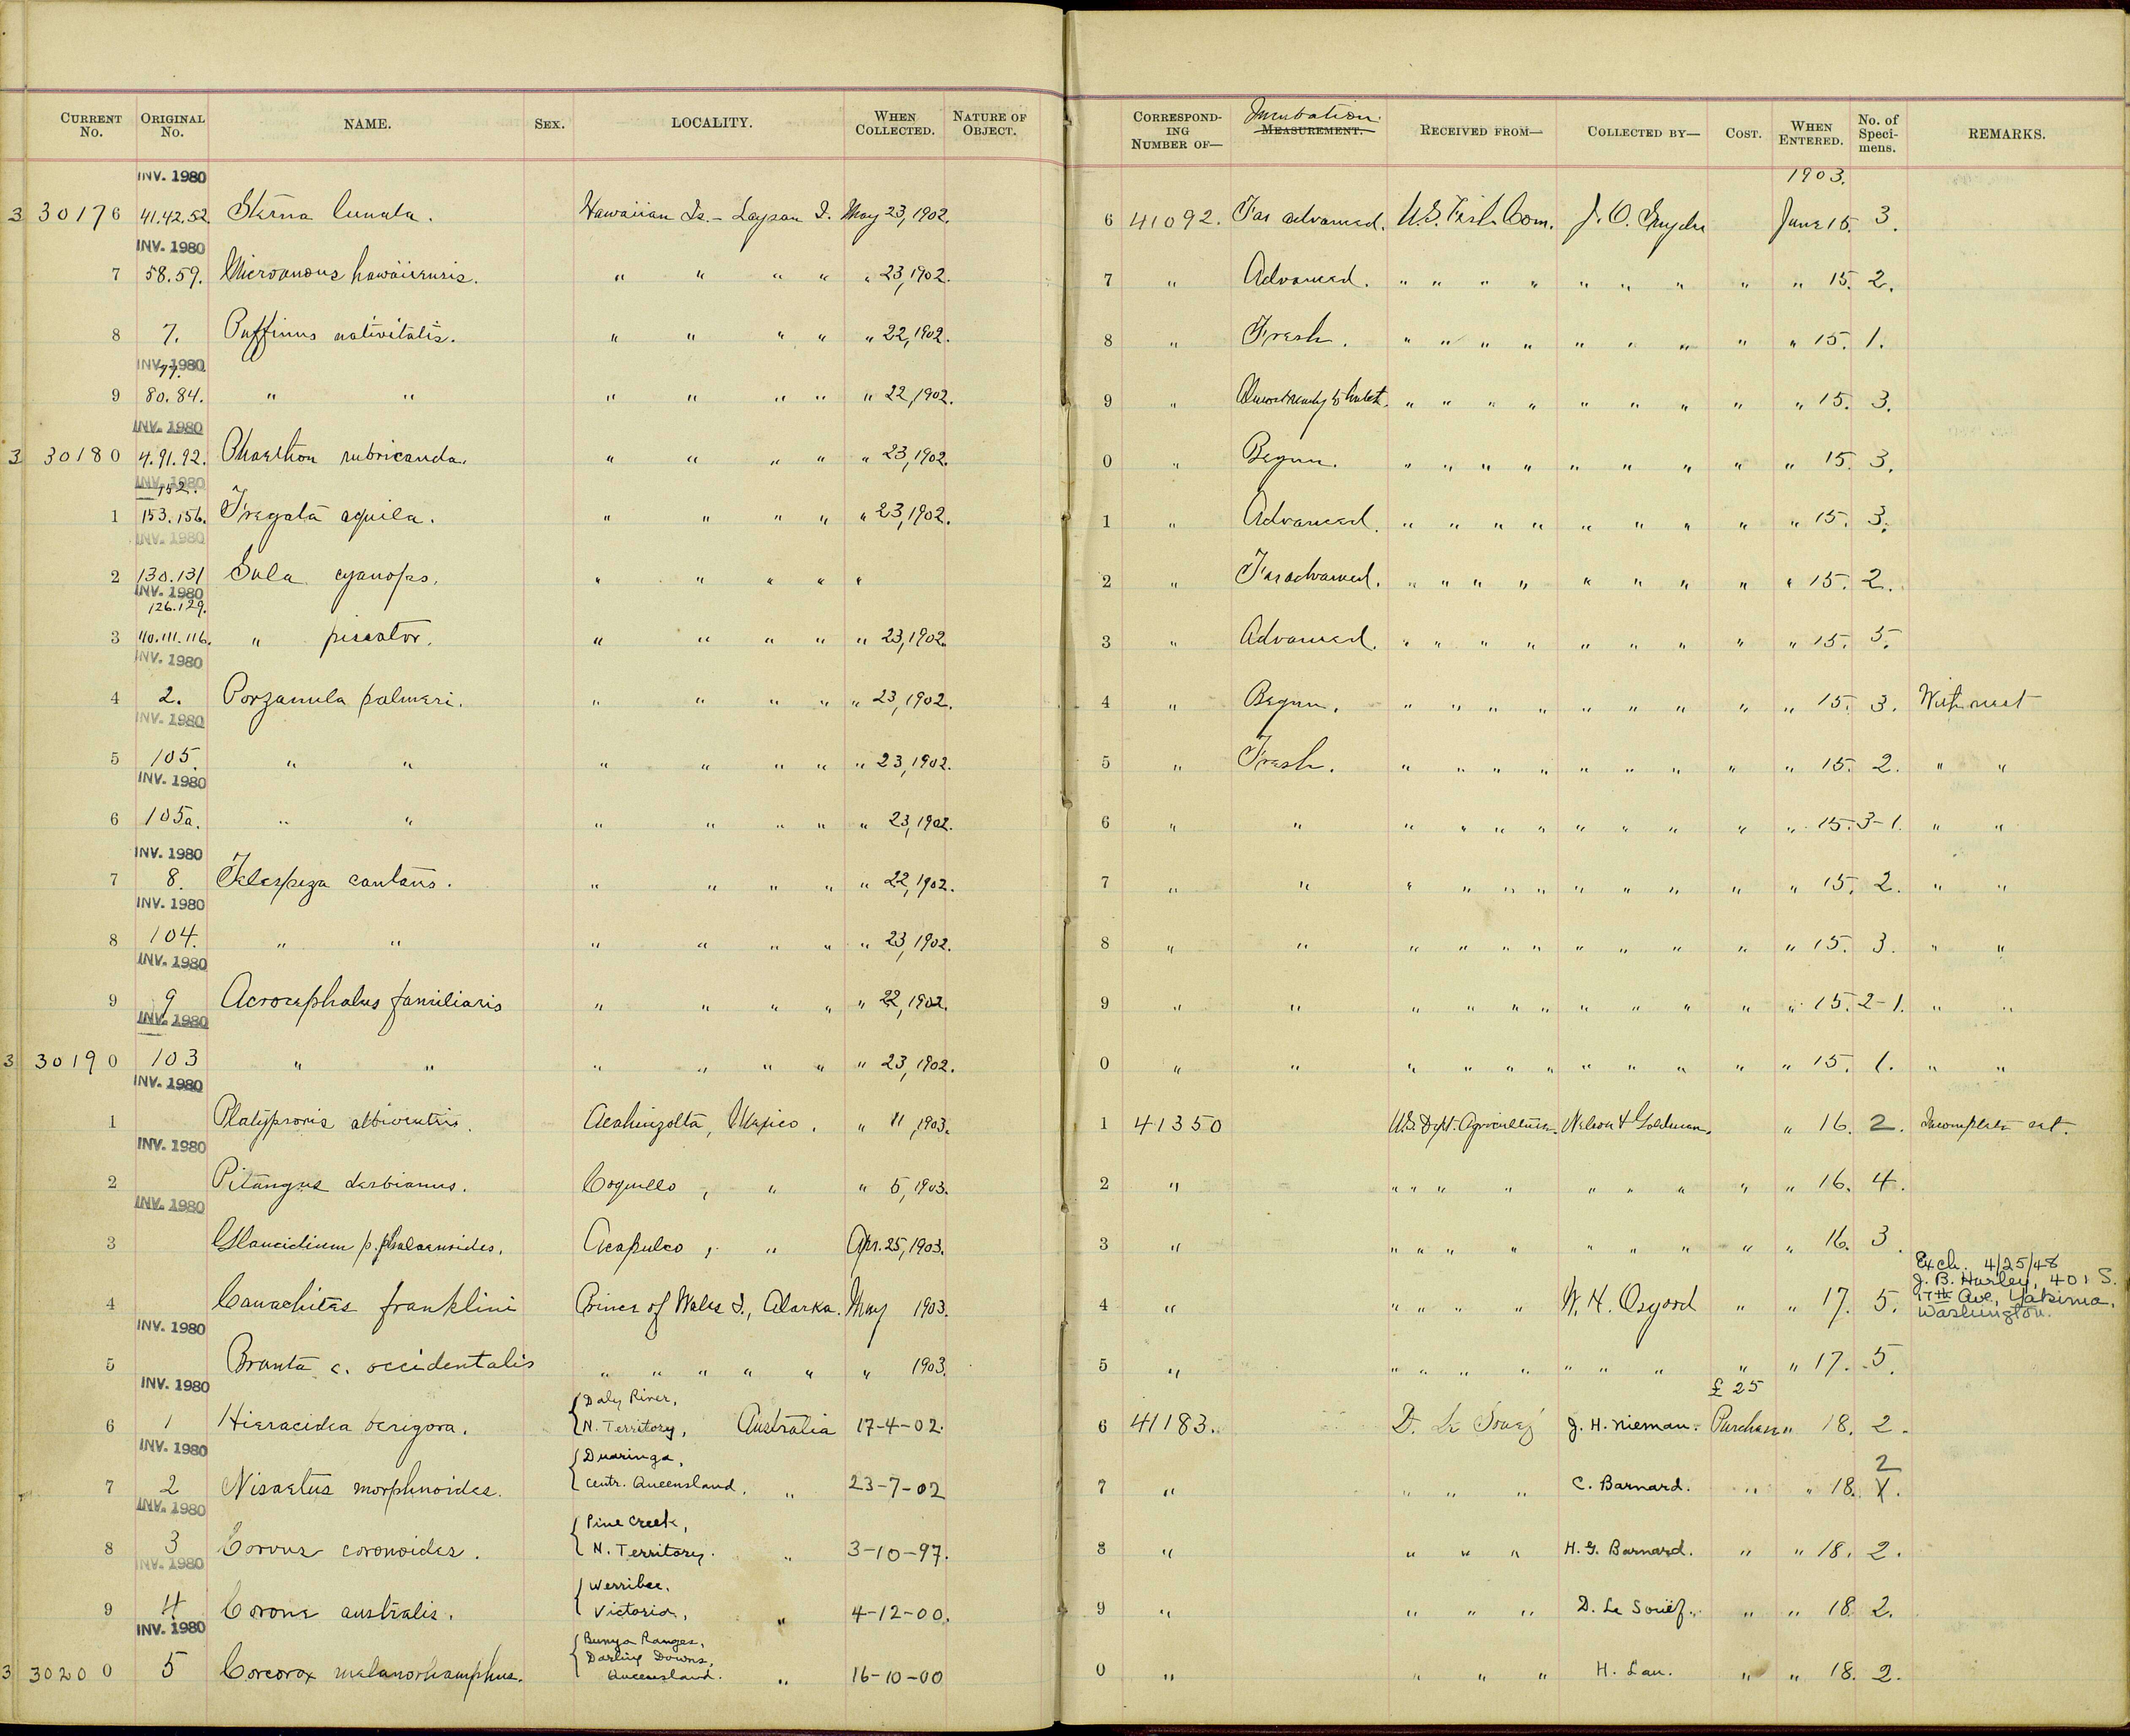 CURRENT No. ORIGINAL No. NAME. SEX. LOCALITY. WHEN COLLECTED. NATURE OF OBJECT. CORRESPONDING NUMBER OF— Incubation MEASUREMENT. RECEIVED FROM— COLLECTED BY— COST. WHEN ENTERED. No. of Specimens. REMARKS.
INV. 1980 1903.
3 30176 41.42.52 Sterna lunata. Hawaiian Is. - Laysan I. May 23, 1902. 6 41092. Far advanced. U.S. Fish Com. J. O. Snyder June 15. 3.
INV. 1980
7 58.59. Micranous hawaiiensis. " " " " " 23, 1902. 7 " Advanced. " " " " " " " " " 15. 2.
8 7. Puffinus nativitatis. " " " " " 22, 1902. 8 " Fresh. " " " " " " " " " 15. 1.
INV. 1980
77.
9 80.84. " " " " " " " 22, 1902. 9 " Almost ready to hatch. " " " " " " " " " 15. 3.
INV. 1980
3 30180 4.91.92. Phaethon rubricauda. " " " " " 23, 1902. 0 " Begun. " " " " " " " " " 15. 3.
INV. 1980
152.
1 153.156. Fregata aquila. " " " " " 23, 1902. 1 " Advanced. " " " " " " " " " 15. 3.
INV. 1980
2 130.131 Sula cyanops. " " " " " 2 " Far advanced. " " " " " " " " " 15. 2.
INV. 1980
126.129.
3 110.111.116. " piscator. " " " " " 23, 1902. 3 " Advanced. " " " " " " " " " 15. 5.
INV. 1980
4 2. Porzanula palmeri. " " " " " 23, 1902. 4 " Begun. " " " " " " " " " 15. 3. With nest
INV. 1980
5 105. " " " " " " " 23, 1902. 5 " Fresh. " " " " " " " " " 15. 2. " "
INV. 1980
6 105a. " " " " " " " 23, 1902. 6 " " " " " " " " " " " 15. 3-1. " "
INV. 1980
7 8. Telespiza cantans. " " " " " 22, 1902. 7 " " " " " " " " " " " 15. 2. " "
INV. 1980
8 104. " " " " " " " 23, 1902. 8 " " " " " " " " " " " 15. 3. " "
INV. 1980
9 9 Acrocephalus familiaris " " " " " 22, 1902. 9 " " " " " " " " " " " 15. 2-1. " "
INV. 1980
3 30190 103 " " " " " " " 23, 1902. 0 " " " " " " " " " " " 15. 1. " "
INV. 1980
1 Platypsaris albiventris. Mexico. " 11, 1903. 1 41350 U.S. Dept. Agriculture. Nelson & Goldman. " 16. 2. Incomplete set.
INV. 1980
2 Pitangus derbianus. Coquillo, " " 5, 1903. 2 " " " " " " " " " " 16. 4.
INV. 1980
3 Glaucidium p. phalaenoides. Acapulco, " Apr. 25, 1903. 3 " " " " " " " " " " 16. 3.
4 Canachites franklini Prince of Wales I., Alaska. May 1903. 4 " " " " " W. H. Osgood " " 17. 5. Exch. 4/25/48
J. B. Hurley, 401 S.
17th Ave, Yakima,
Washington.
INV. 1980
5 Branta c. occidentalis " " " " " " 1903. 5 " " " " " " " " " " 17. 5.
INV. 1980 £ 25
6 1 Hieracidea berigora. Daly River,
N. Territory, Australia 17-4-02. 6 41183. D. Le Souëf J. H. Nieman. Purchase " 18. 2.
INV. 1980
7 2 Nisaetus morphnoides. Duaringa,
centr. Queensland. " 23-7-02 7 " " " " C. Barnard. " " 18. 2
INV. 1980
8 3 Corvus coronoides. Pine Creek,
N. Territory. " 3-10-97. 8 " " " " H. G. Barnard. " " 18. 2.
INV. 1980
9 4 Corone australis. Werribee,
Victoria, " 4-12-00. 9 " " " " D. Le Souëf. " " 18. 2.
INV. 1980
3 30200 5 Corcorax melanorhamphus. Bunya Ranges,
Darling Downs,
Queensland. " 16-10-00 0 " " " " H. Lau. " " 18. 2.